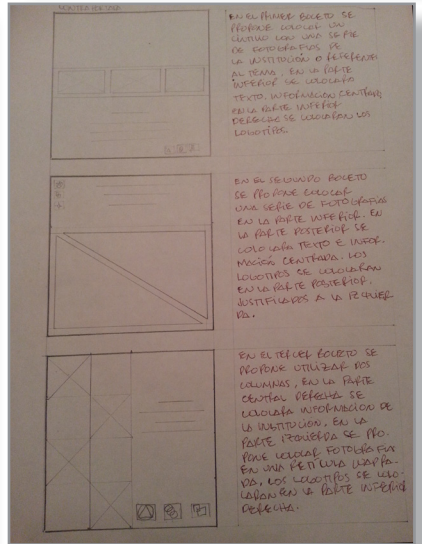 EN EL PRIMER BOCETO SE
PROPONE COLOCAR UN
CON UNA SERIE
DE FOTOGRAFIAS DE
LA INSTITUCIÓN O REFERENTES
AL TEMA, EN LA PARTE
INFERIOR SE COLOCARA
TEXTO, INFORMACION CENTRADA
EN LA PARTE INFERIOR
DERECHA SE COLOCARAN LOS
LOGOTIPOS.
EN EL SEGUNDO BOCETO
SE PROPONE COLOCAR
UNA SERIE DE FOTOGRAFIAS
EN LA PARTE INFERIOR. EN
LA PARTE POSTERIOR SE
COLOCARA TEXTO E INFOR-
MACIÓN CENTRADA. LOS
LOGOTIPOS SE COLOCARAN
EN LA PARTE POSTERIOR.
JUSTIFICADOS A LA IZQUIER
DA.
EN EL TERCER BOCETO SE
PROPONE UTILIZAR DOS
COLUMNAS, EN LA PARTE
CENTRAL DERECHA SE
COLOCARA INFORMACION DE
LA INSTITUCION. EN LA
PARTE IZQUIERDA SE PRO-
PONE COLOCAR FOTOGRAFIAS
EN UNA RETICULA
DA. LOS LOGOTIPOS SE COLO-
CARAN EN LA PARTE INFERIOR
DERECHA.